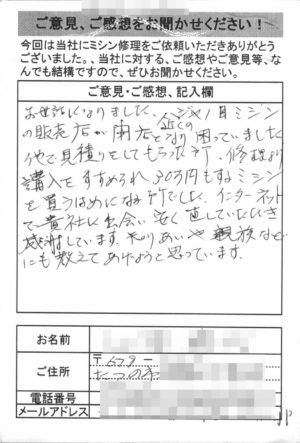 ご意見、ご感想をお聞かせください！
今回は当社にミシン修理をご依頼いただきありがとう
ございました。、当社に対する、ご感想やご意見等、な
んでも結構ですので、ぜひお聞かせください。
ご意見・ご感想、記入欄
お世話になりました。ジャノ目ミシン
近くの
の販売店が閉店となり困っていました
他で見積りをしてもらった所、修理より
購入をすすめられ、30万円もするミシン
を買うはめになる所でした。インターネット
で貴社に出会い、安く直していただき
感謝しています。知りあいや親族など
にも教えてあげようと思っています。
お名前
ご住所
〒679-
たつの市
電話番号
メールアドレス